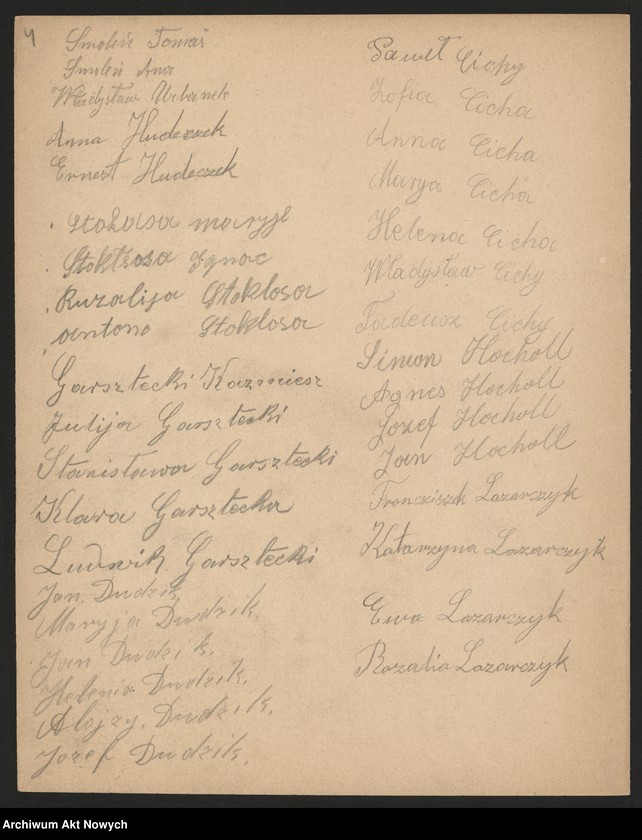 4
Smoleń Tomaś
Smoleń Ana
Władysław Urbanek
Anna Hudeczek
Ernest Hudeczek
Stokłosa maryje
Stokłosa Ignac
Ruzalija Stoklosa
antono Stoklosa
Garsztecki Kazmiesz
Julija Garsztecki
Stanisława Garsztecki
Klara Garsztecka
Ludwik Garsztecki
Jan Dudzik,
Maryja Dudzik,
Jan Dudzik.
Helenia Dudzik.
Alojzy. Dudzik.
Jozef Dudzik.
Paweł Cichy
Zofia Cicha
Anna Cicha
Marya Cicha
Helena Cicha
Władysław Cichy
Tadeusz Cichy
Simon Hocholl
Agnes Hocholl
Jozef Hocholl
Jan Hocholl
Franciszek Lazarczyk
Katarzyna Lazarczyk
Ewa Lazarczyk
Rozalia Lazarczyk
Archiwum Akt Nowych